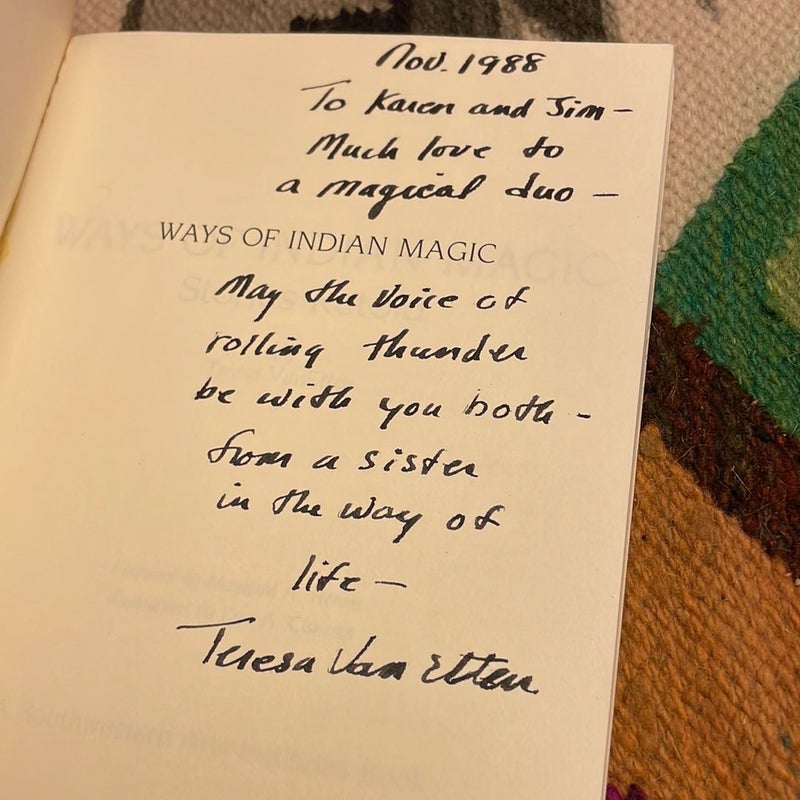 Nov. 1988
To Karen and Jim –
Much love to
a magical duo –
WAYS OF INDIAN MAGIC
May the voice of
rolling thunder
be with you both –
from a sister
in the way of
life –
Teresa Van Etten